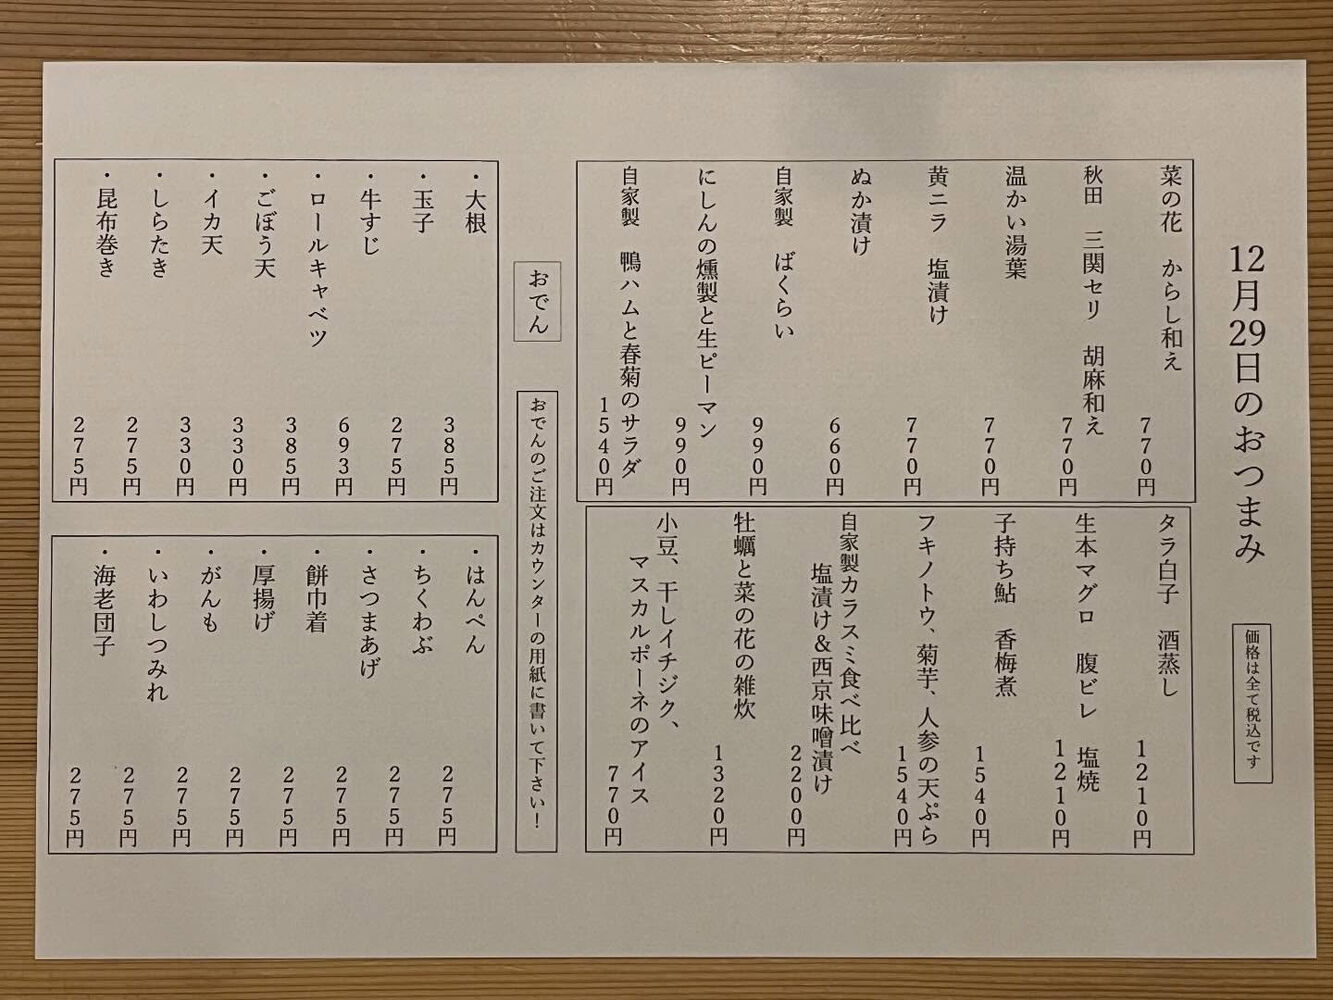 12月29日のおつまみ
価格は全て税込です
菜の花 からし和え
770円
秋田 三関セリ 胡麻和え
770円
温かい湯葉
770円
黄ニラ 塩漬け
770円
ぬか漬け
660円
自家製 ばくらい
990円
にしんの燻製と生ピーマン
990円
自家製 鴨ハムと春菊のサラダ
1540円
タラ白子 酒蒸し
1210円
生本マグロ 腹ビレ 塩焼
1210円
子持ち鮎 香梅煮
1540円
フキノトウ、菊芋、人参の天ぷら
1540円
自家製カラスミ食べ比べ
塩漬け&西京味噌漬け
2200円
牡蠣と菜の花の雑炊
1320円
小豆、干しイチジク、
マスカルポーネのアイス
770円
おでん
おでんのご注文はカウンターの用紙に書いて下さい!
・大根
385円
・玉子
275円
・牛すじ
693円
・ロールキャベツ
385円
・ごぼう天
330円
・イカ天
330円
・しらたき
275円
・昆布巻き
275円
・はんぺん
275円
・ちくわぶ
275円
・さつまあげ
275円
・餅巾着
275円
・厚揚げ
275円
・がんも
275円
・いわしつみれ
275円
・海老団子
275円